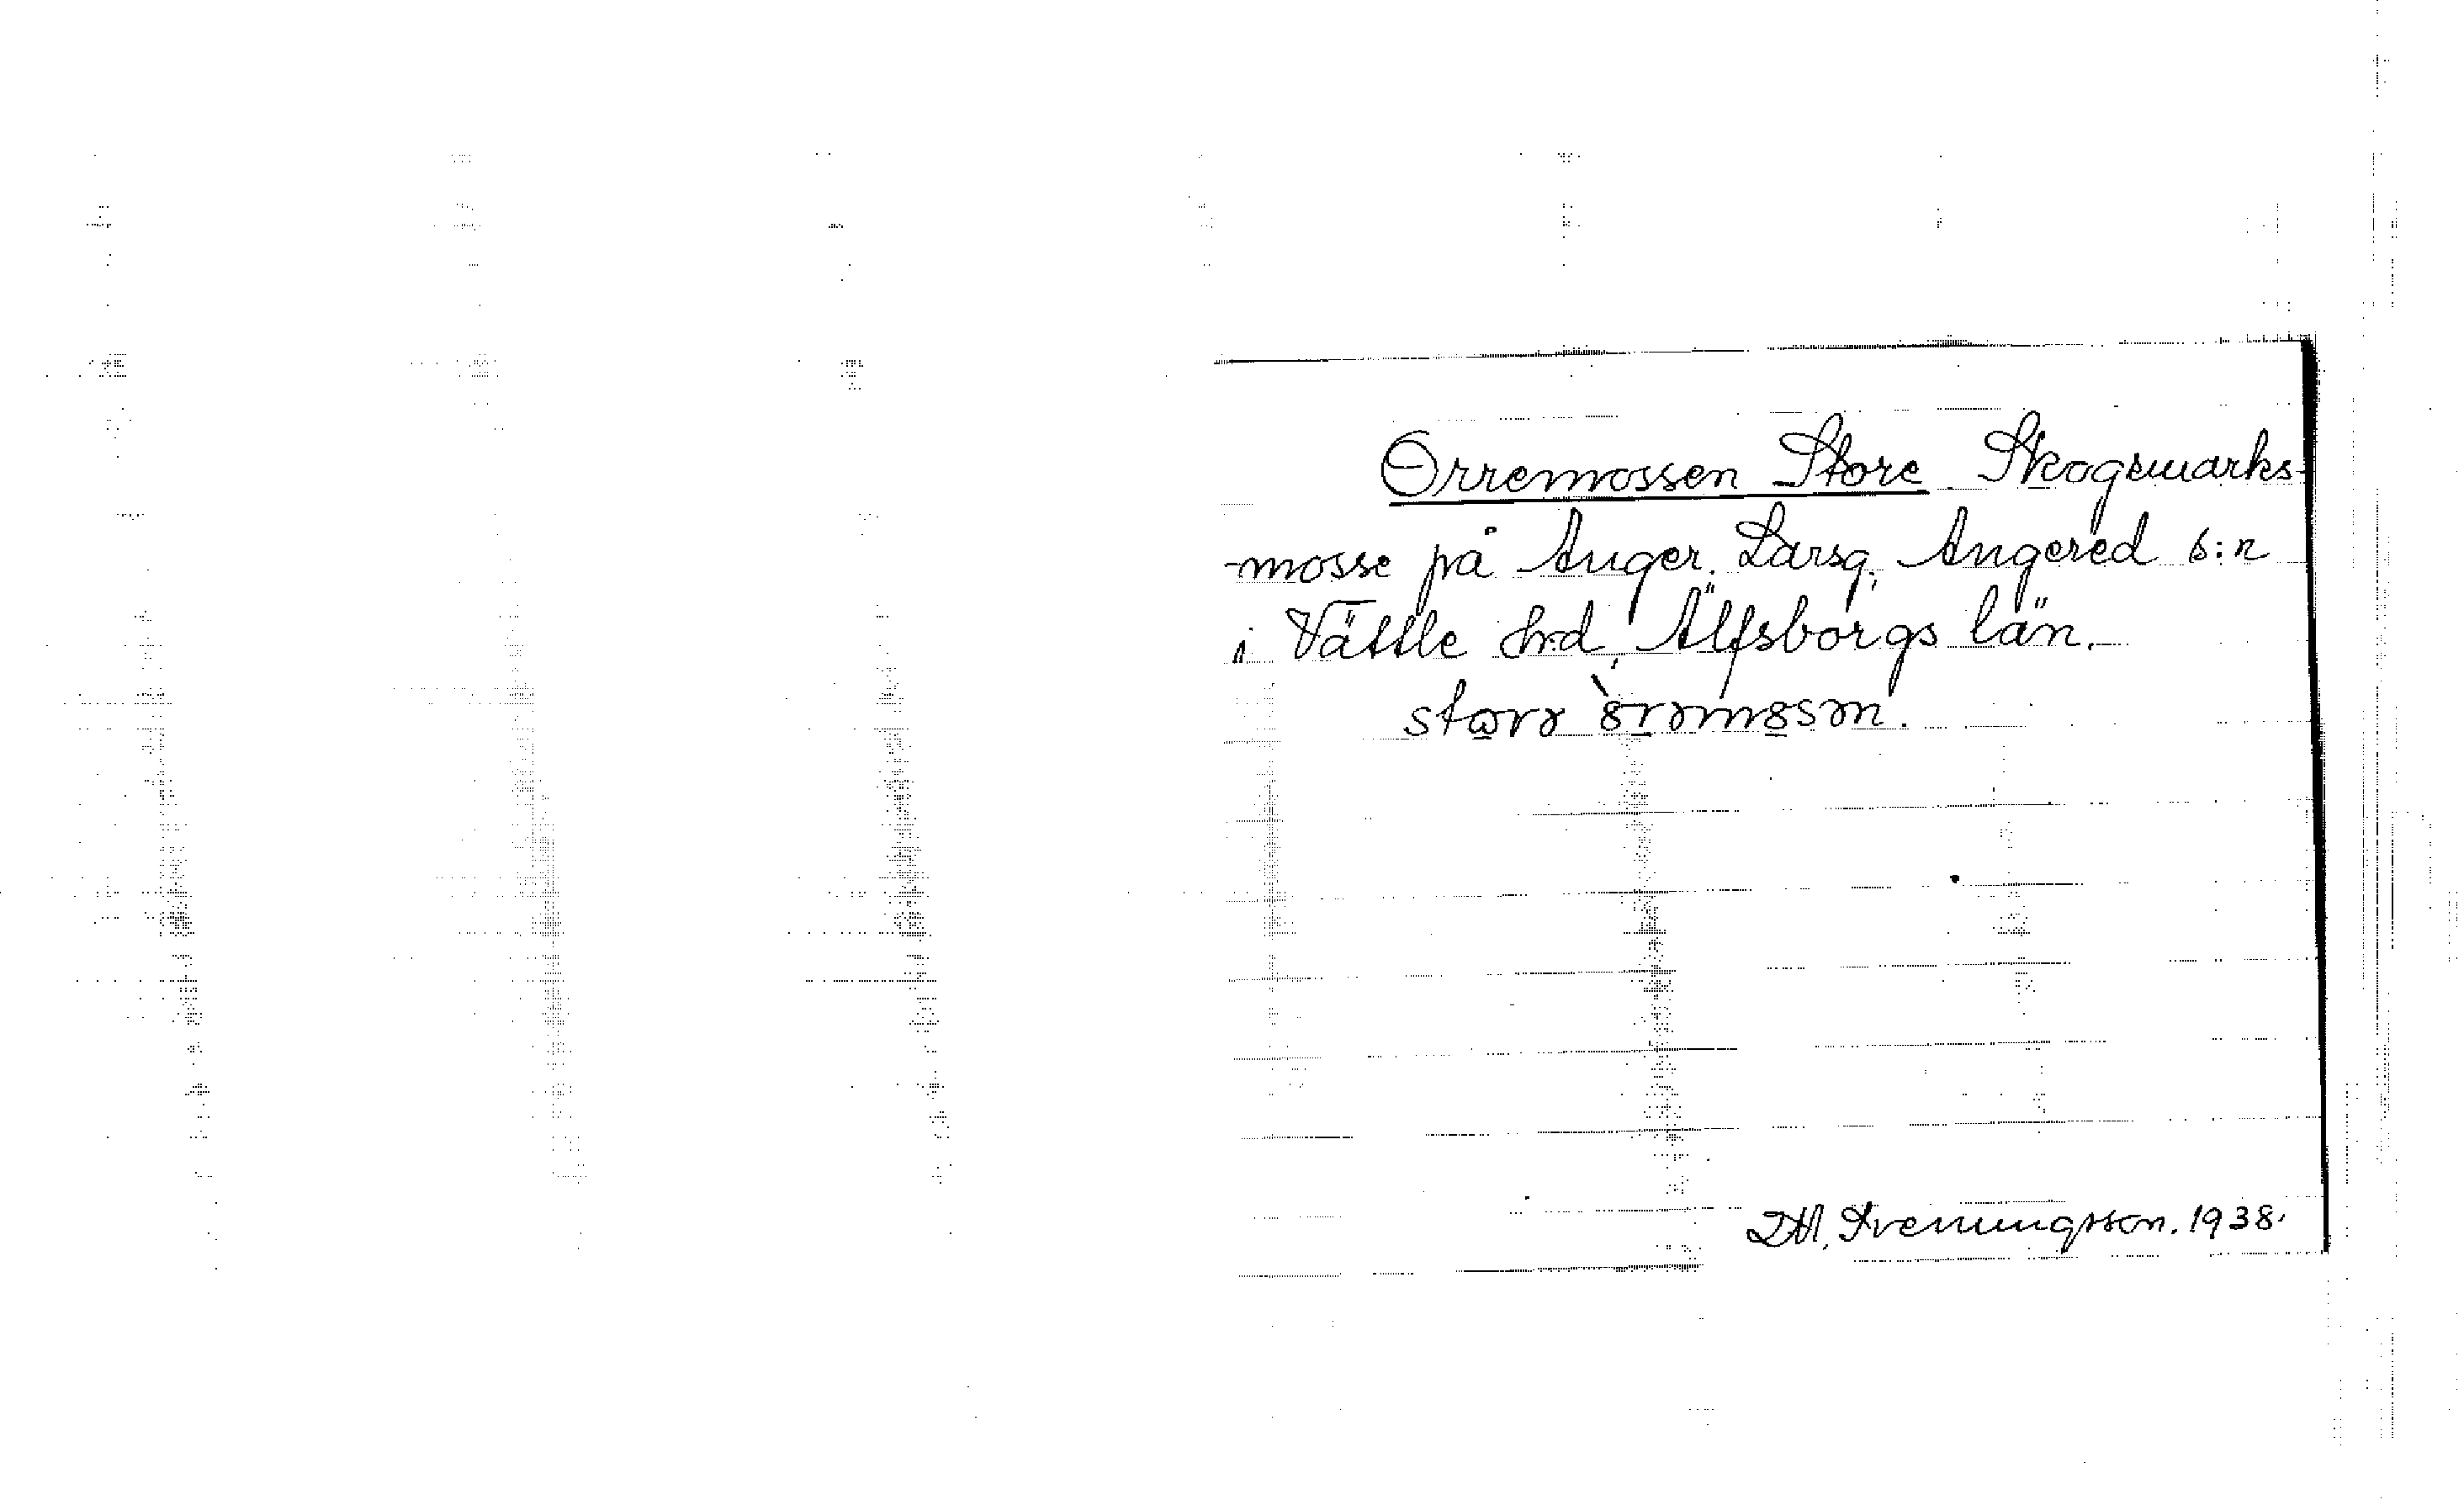 Orremossen Store Skogsmarks-
-mosse på Anger. Larsg., Angered s:n
i Vättle hrd, Älfsborgs län.
D.H. Svenningsson. 1938.